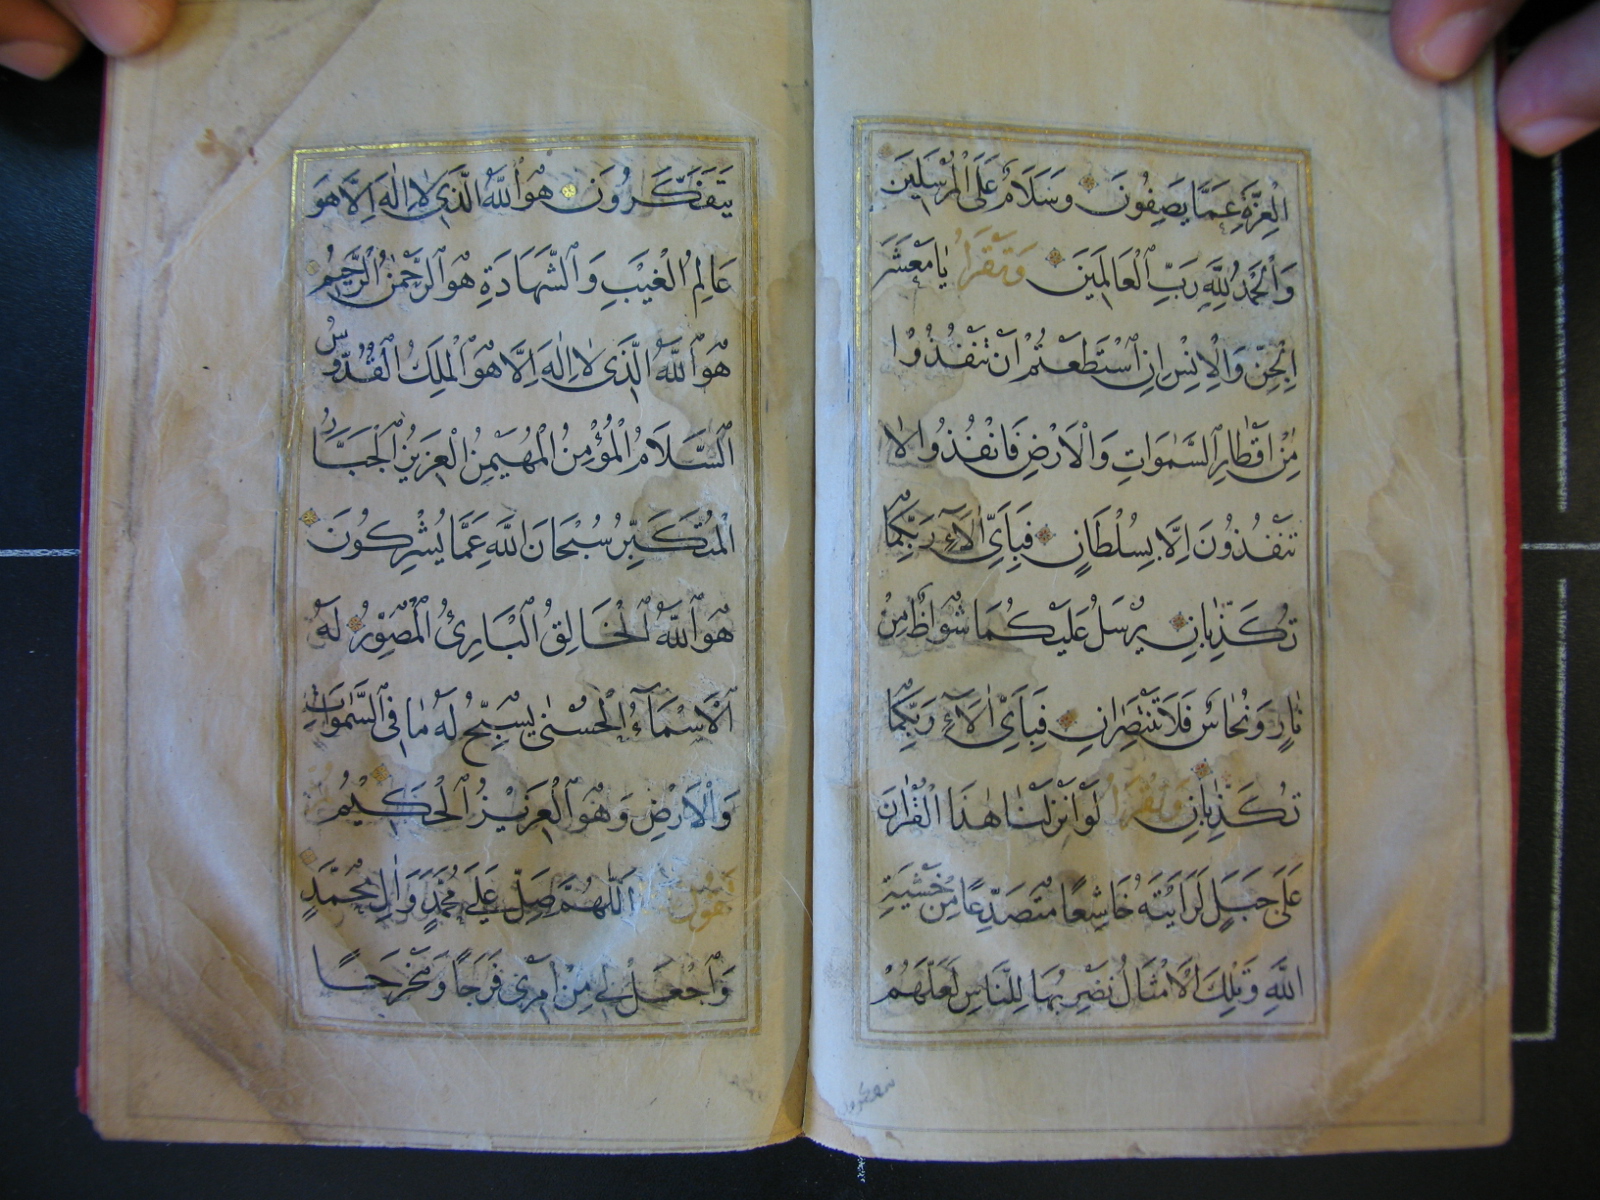 الْعِزَّةِ عَمَّا يَصِفُونَ وَسَلَامٌ عَلَى الْمُرْسَلِينَ
وَالْحَمْدُ لِلَّهِ رَبِّ الْعَالَمِينَ وَتَقْرَأُ يَا مَعْشَرَ
الْجِنِّ وَالْاِنْسِ اِنِ اسْتَطَعْتُمْ اَنْ تَنْفُذُوا
مِنْ اَقْطَارِ السَّمٰوَاتِ وَالْاَرْضِ فَانْفُذُوا لَا
تَنْفُذُونَ اِلَّا بِسُلْطَانٍ فَبِاَىِّ اٰلَآءِ رَبِّكُمَا
تُكَذِّبَانِ يُرْسَلُ عَلَيْكُمَا شُوَاظٌ مِنْ
نَارٍ وَنُحَاسٌ فَلَا تَنْتَصِرَانِ فَبِاَىِّ اٰلَآءِ رَبِّكُمَا
تُكَذِّبَانِ وَتَقْرَأُ لَوْ اَنْزَلْنَا هٰذَا الْقُرْاٰنَ
عَلَى جَبَلٍ لَرَاَيْتَهُ خَاشِعًا مُتَصَدِّعًا مِنْ خَشْيَةِ
اللَّهِ وَتِلْكَ الْاَمْثَالُ نَضْرِبُهَا لِلنَّاسِ لَعَلَّهُمْ
يَتَفَكَّرُونَ هُوَ اللَّهُ الَّذِى لَا اِلٰهَ اِلَّا هُوَ
عَالِمُ الْغَيْبِ وَالشَّهَادَةِ هُوَ الرَّحْمٰنُ الرَّحِيمُ
هُوَ اللَّهُ الَّذِى لَا اِلٰهَ اِلَّا هُوَ الْمَلِكُ الْقُدُّوسُ
السَّلَامُ الْمُؤْمِنُ الْمُهَيْمِنُ الْعَزِيزُ الْجَبَّارُ
الْمُتَكَبِّرُ سُبْحَانَ اللَّهِ عَمَّا يُشْرِكُونَ
هُوَ اللَّهُ الْخَالِقُ الْبَارِئُ الْمُصَوِّرُ لَهُ
الْاَسْمَآءُ الْحُسْنٰى يُسَبِّحُ لَهُ مَا فِى السَّمٰوَاتِ
وَالْاَرْضِ وَهُوَ الْعَزِيزُ الْحَكِيمُ
اَللّٰهُمَّ صَلِّ عَلَى مُحَمَّدٍ وَاٰلِ مُحَمَّدٍ
وَاجْعَلْ لِى مِنْ اَمْرِى فَرَجًا وَمَخْرَجًا